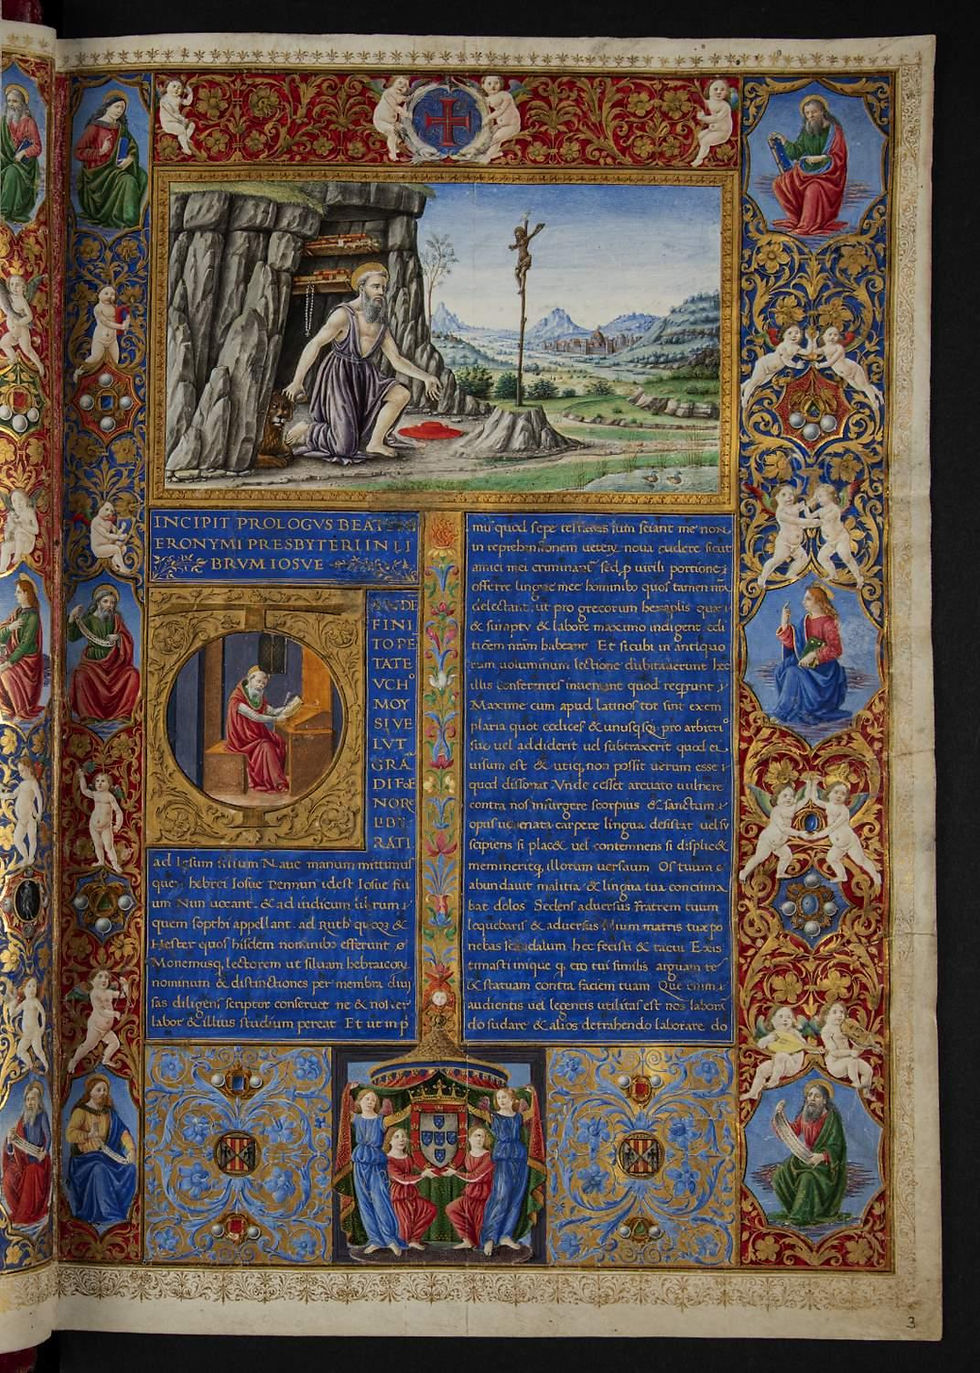 INCIPIT PROLOGVS BEATI
ERONYMI PRESBYTERI IN LI
BRVM IOSVE
FINI
TO PE
TATE
VCHº
MOY
SI VE
LVT
GRA
NORE
LIBE
RATI
ad Iesum filium Naue manum mittimus
quem hebrei Iosue Bennun idest Iosue fili
um Nun uocant. & ad iudicum librum
quem sopthi appellant. ad Ruth quoq; &
Hester quos hisdem nominibus efferunt
Monemusq; lectorem ut siluam hebraicorum
nominum & distinctiones per membra diui
sas diligens scriptor conseruet ne & noster
labor & illius studium pereat Et ut in p
mis quod sepe testatus sum sciant me non
in reprehensionem ueterum noua cudere sicut
amici mei criminantur sed p uirili portione
offerre lingue mee hominibus quos tamen nra
delectant. ut pro grecorum hexaplis que
& sumptu & labore maximo indigent edi
tionem nram habeant Et sicubi in antiquo
rum uoluminum lectione dubitauerunt hec
illis conferentes inueniant quod requirunt
Maxime cum apud latinos tot sint exem
plaria quot codices & unusquisq; pro arbitrio
suo uel addiderit uel subtraxerit quod ei
uisum est & utiq; non possit uerum esse
quod dissonat Vnde cesset arcuato uulnere
contra nos insurgere scorpius & sanctum
opus uenenata carpere lingua desistat uel
sapiens si placet uel contemnens si displicet
memineritq; illorum uersuum Os tuum
abundauit malitia & lingua tua concinna
bat dolos Sedens aduersus fratrem tuum
loquebaris & aduersus filium matris tue po
nebas scandalum hec fecisti & tacui Exis
timasti inique q ero tui similis arguam te
& statuam contra faciem tuam Que enim
audientis uel legentis utilitas est nos labora
do sudare & alios detrahendo laborare do
3